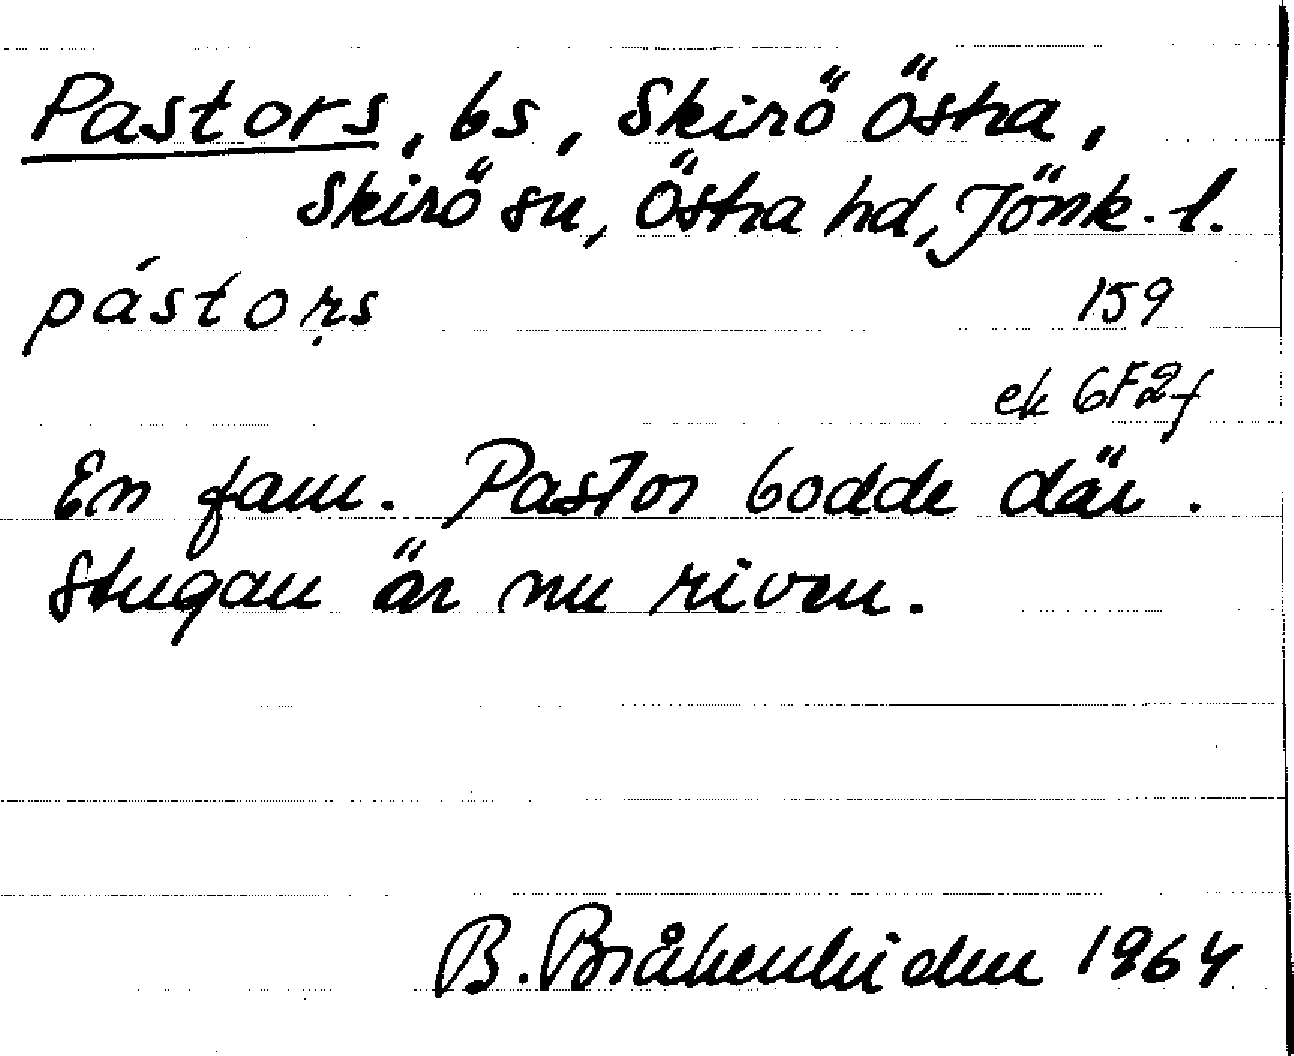 Pastors, bs, Skirö Östra,
Skirö sn, Östra hd, Jönk. l.
pástọrs
159
ek 6F2f
En fam. Pastor bodde där.
Stugan är nu riven.
B. 1964